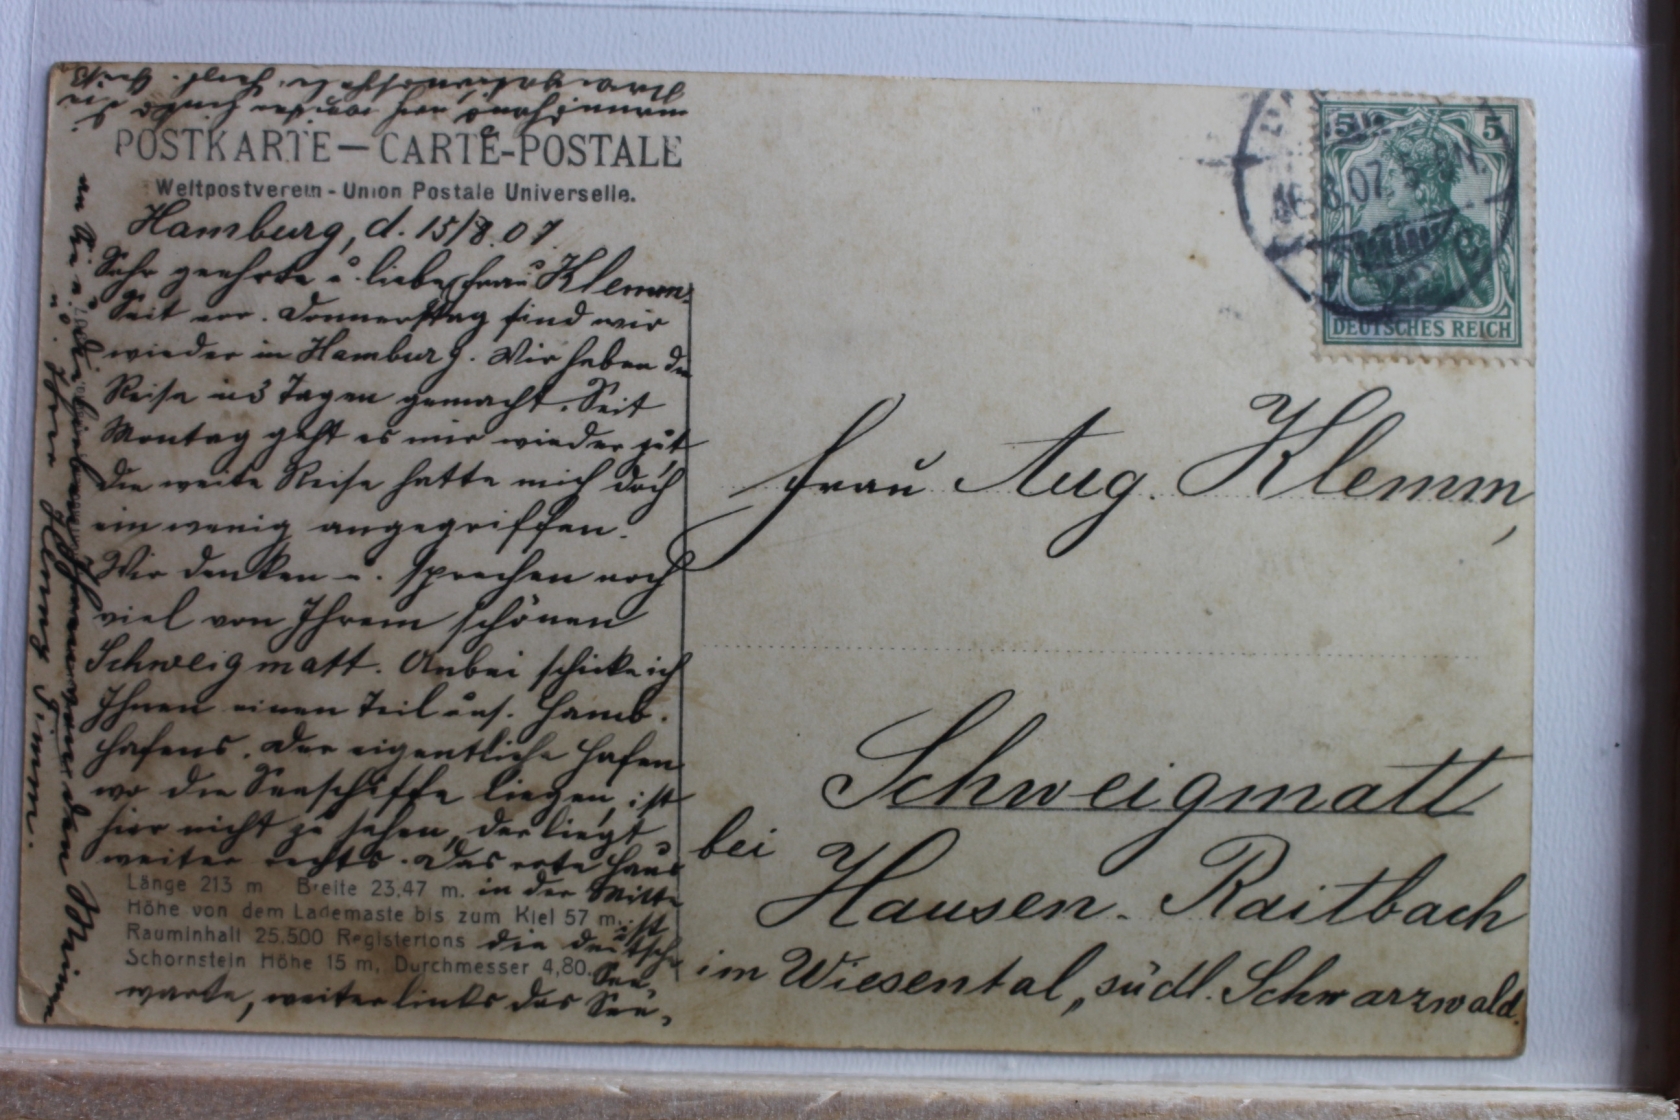 POSTKARTE — CARTE-POSTALE
Weltpostverein - Union Postale Universelle.
Hamburg, d. 15/8.07.
Sehr geehrte u. liebe Frau Klemm.
Seit vor. Donnerstag sind wir
wieder in Hamburg. Wir haben die
Reise in 3 Tagen gemacht. Seit
Montag geht es mir wieder gut
die weite Reise hatte mich doch
ein wenig angegriffen.
Wir denken u. sprechen noch
viel von Ihrem schönen
Schweigmatt. Anbei schicke ich
Ihnen einen Teil uns. Hamb.
Hafens. Der eigentliche Hafen
wo die Seeschiffe liegen, ist
hier nicht zu sehen, der liegt
weiter rechts. Das rote Haus
in der Mitte
ist
die deutsche
See-
warte, weiter links das See-
mannshaus
an Sie u.
von den Meinen
u. Ihrer
Timm.
Länge 213 m Breite 23,47 m.
Höhe von dem Lademaste bis zum Kiel 57 m.
Rauminhalt 25.500 Registertons
Schornstein Höhe 15 m, Durchmesser 4,80
5 5
DEUTSCHES REICH
16.8.07
Frau Aug. Klemm,
Schweigmatt
bei
Hausen-Raitbach
im Wiesental, südl. Schwarzwald.